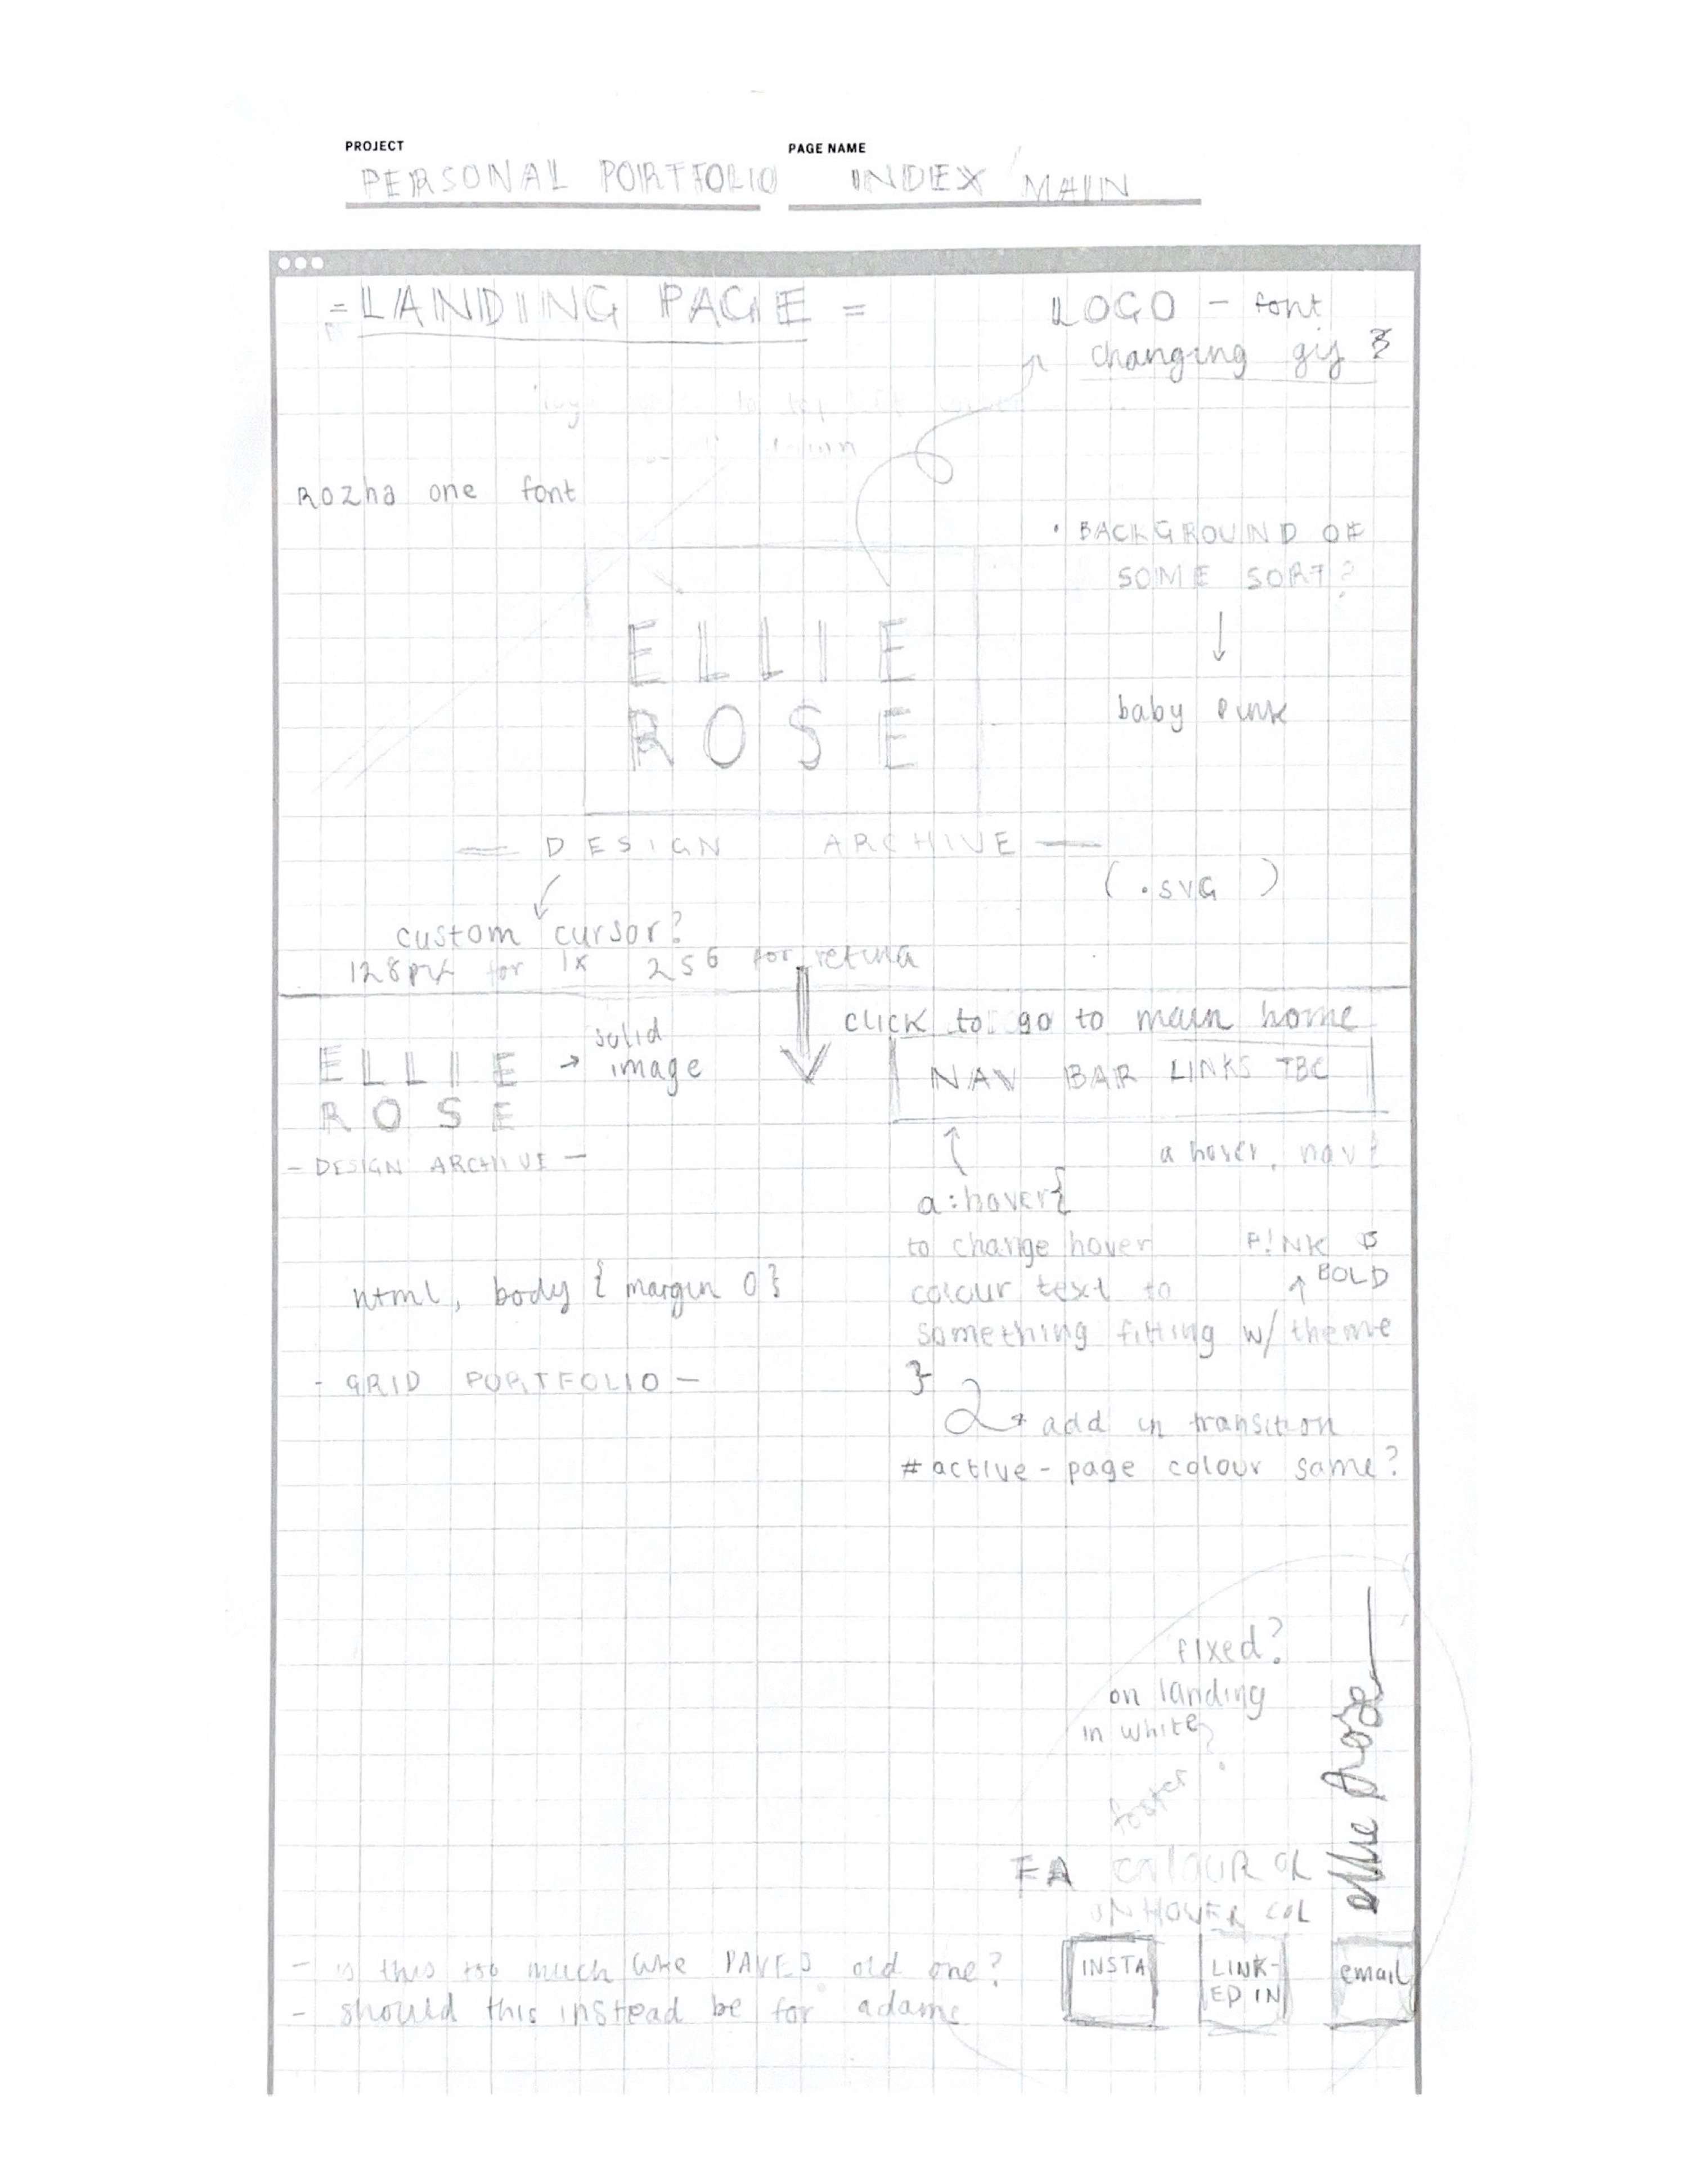 PROJECT
PERSONAL PORTFOLIO
PAGE NAME
INDEX / MAIN
= LANDING PAGE =
LOGO - font
changing gif
Rozha one font
• BACKGROUND OF
SOME SORT?
↓
baby pink
ELLIE
ROSE
— DESIGN ARCHIVE —
(.SVG)
custom cursor?
128px for 1x 256 for retina
click to go to main home
ELLIE
ROSE
→ solid
image
- DESIGN ARCHIVE -
NAV BAR LINKS TBC
a hover, nav
a:hover{
to change hover
colour text to
something fitting w/ theme
}
P!NK
BOLD
html, body { margin 0 }
- GRID PORTFOLIO -
add in transition
#active-page colour same?
fixed?
on landing
in white?
ellie rose
FA COLOUR OR
HOVER COL
INSTA
LINK-
ED IN
email
- is this too much like old one?
- should this instead be for adams